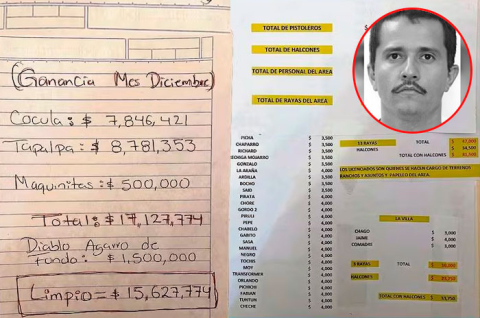 (Ganancia Mes Diciembre)
Cocula: $ 7,846,421
Tapalpa: $ 8,781,353
Maquinitas: $ 500,000
Total: $ 17,127,774
Diablo Agarro de
fondo: $ 1,500,000
Limpio = $ 15,627,774
TOTAL DE PISTOLEROS
TOTAL DE HALCONES
TOTAL DE PERSONAL DEL AREA
TOTAL DE RAYAS DEL AREA
CHAPARRO $ 3,500
RICHARD $ 3,500
GONZALO $ 3,500
LA ARAÑA $ 4,000
ARDILLA $ 4,000
BOCHO $ 3,500
SAID $ 4,000
PIRATA $ 4,000
CHOBE $ 4,000
GORDO 2 $ 4,000
PIRULI $ 4,000
PEPE $ 4,000
CHABELO $ 4,000
GABITO $ 4,000
SAGA $ 4,000
MANUEL $ 4,000
NEGRO $ 4,000
TOCHIS $ 4,000
MOY $ 4,000
TRANSFORMER $ 4,000
ORLANDO $ 4,000
PICHICHI $ 4,000
FABIAN $ 4,000
TUNTUN $ 4,000
CHECHE $ 4,000
13 RAYAS TOTAL
HALCONES
TOTAL CON HALCONES
LOS LICENCIADOS SON LOS QUE SE HACEN CARGO DE TERRENOS
RANCHOS Y ASUNTOS Y PAPELEO DEL AREA.
LA VILLA
CHAGO $
JAIME $
COMADRE $
3 RAYAS TOTAL
HALCONES
TOTAL CON HALCONES